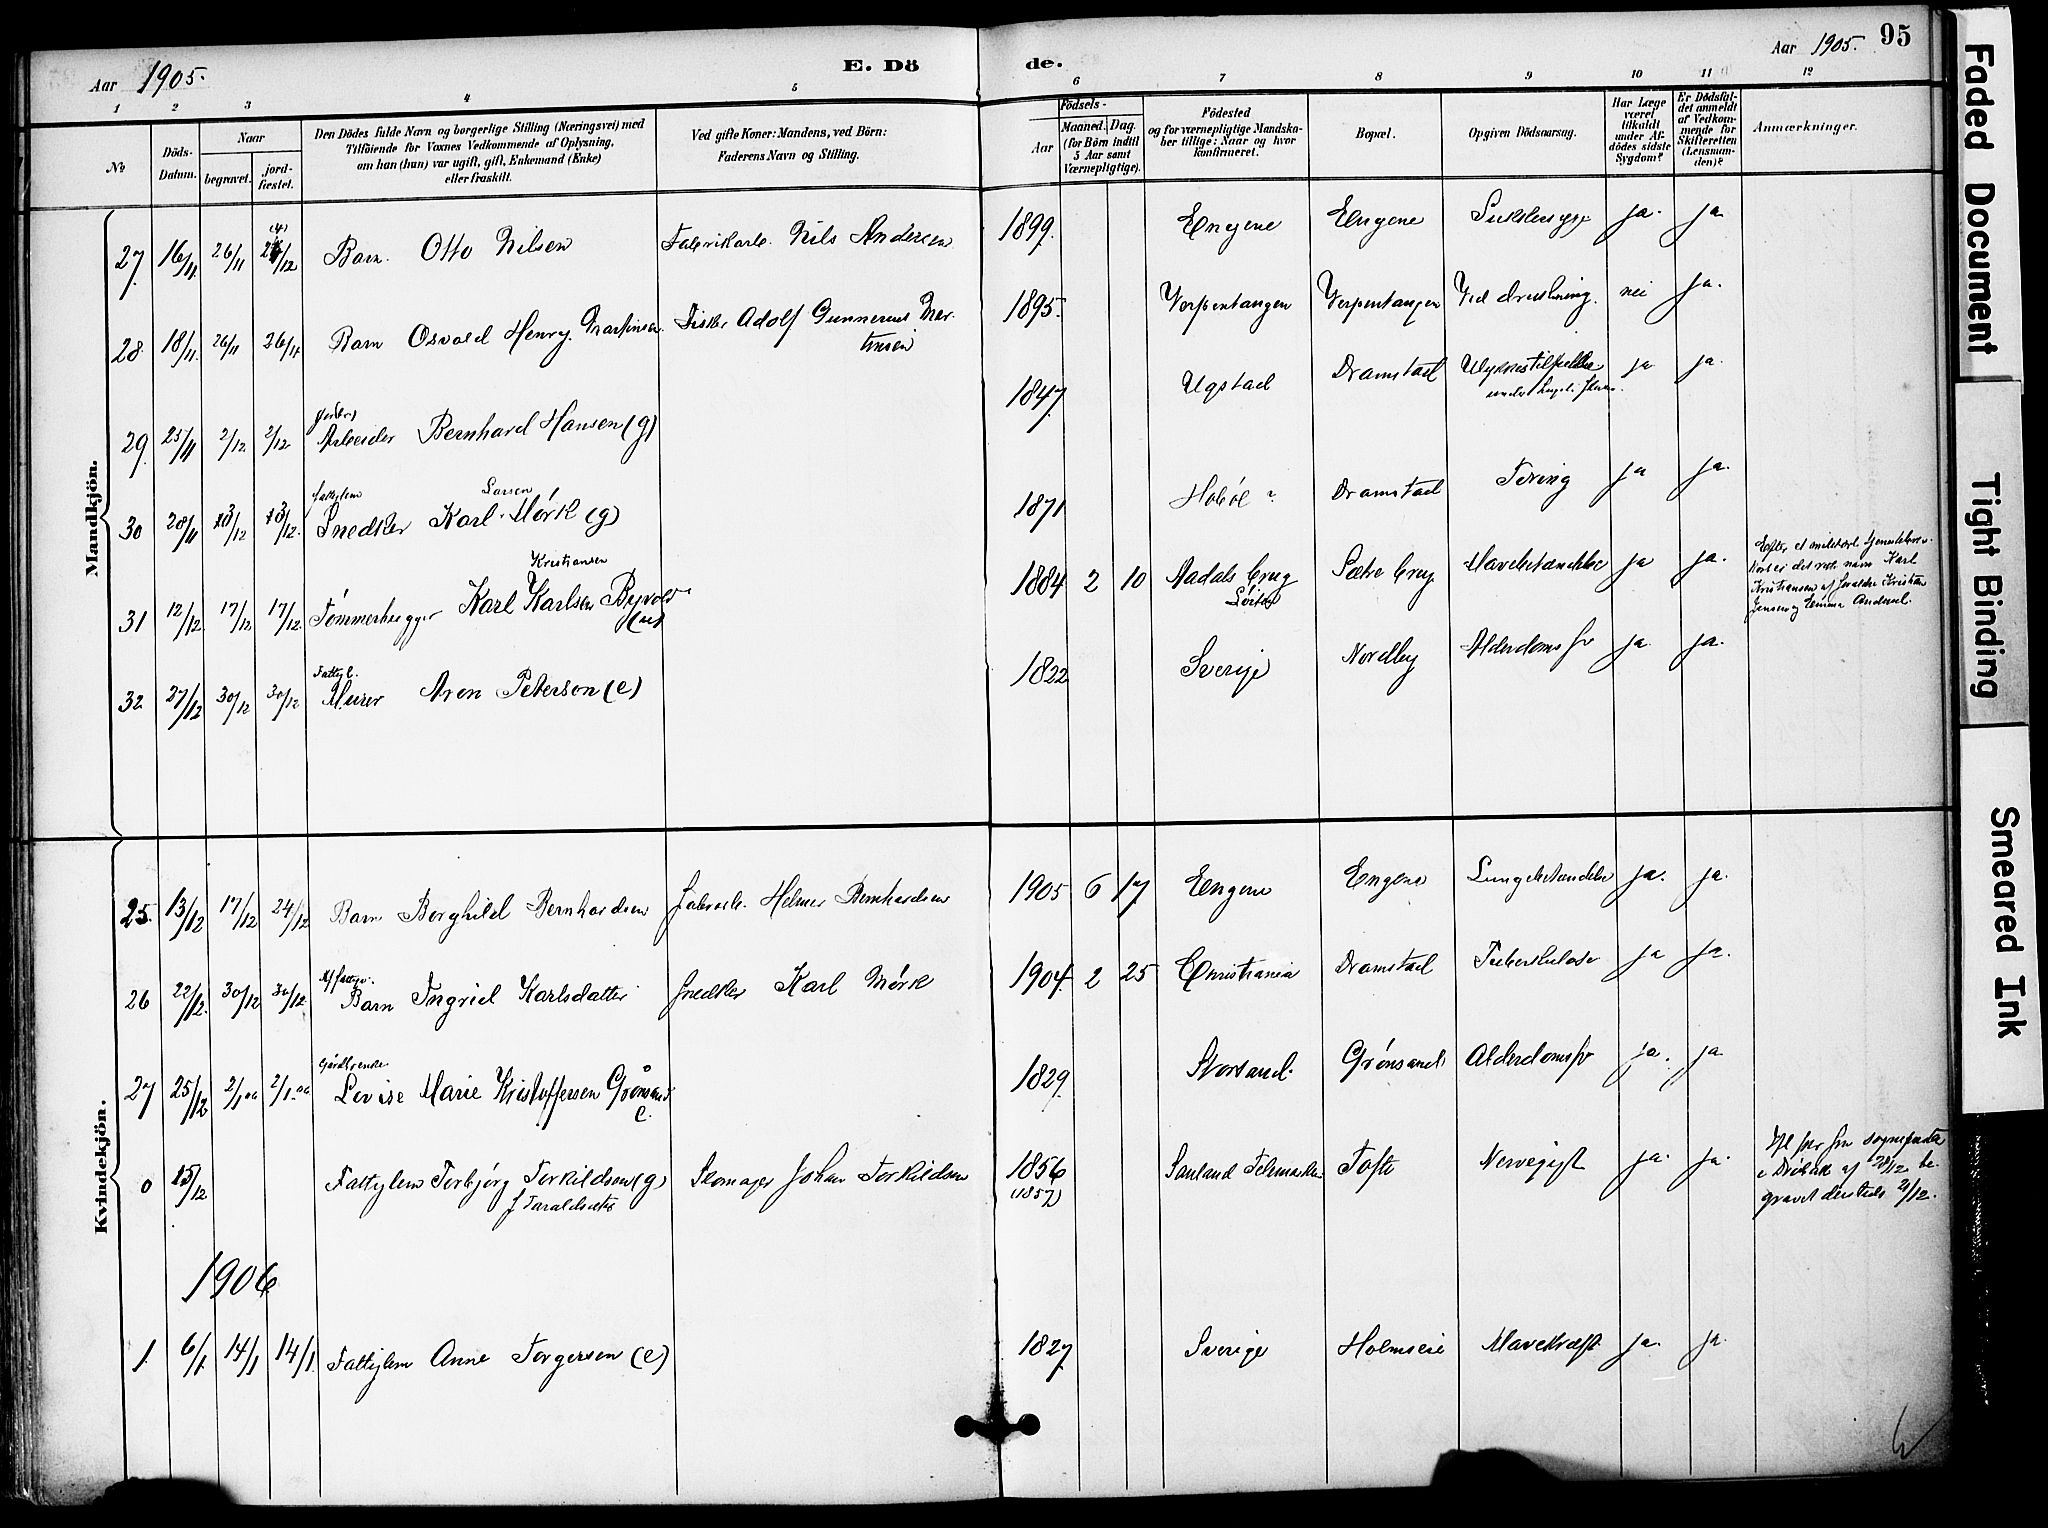 Aar 1905.
E. Dö
de.
Aar 1905. 95
1 2 3 4 5 6 7 8 9 10 11 12
No
Döds-Datum.
Naar
begravet.
jord-fæstet.
Den Dödes fulde Navn og borgerlige Stilling (Næringsvei) med
Tilföiende for Voxnes Vedkommende af Oplysning,
om han (hun) var ugift, gift, Enkemand (Enke)
eller fraskilt.
Ved gifte Koner: Mandens, ved Börn:
Faderens Navn og Stilling.
Födsels-
Aar
Maaned. Dag.
(for Börn indtil
5 Aar samt
Værnepligtige).
Födested
og for værnepligtige Mandska-
ber tillige: Naar og hvor
konfirmeret.
Bopæl.
Opgiven Dödsaarsag.
Har Læge
været
tilkaldt
under Af-
dödes sidste
Sygdom?
Er Dödsfal-
det anmeldt
af Vedkom-
mende for
Skifteretten
(Lensman-
den)?
Anmærkninger.
Mandkjön.
27. 16/11 26/11 /12 Barn. Otto Nilsen Fabrikarb. Nils Andersen 1899. Engene Engene ja. ja
28. 18/11. 26/11 26/11 Barn Osvald Henry Martinsen Fisker Adolf Gunnerius Mar-
tinsen 1895. Verpentangen Verpentangen Ved drukning. nei ja.
29. 25/11 2/12 2/12. Arbeider Bernhard Hansen (g) 1847 Ugstad Dramstad Ulykkestilfælde ja ja.
under
30 28/11 3/12 3/12. fattiglem Snedker Karl Larsen Mørk (g) 1871 Hobøl ? Dramstad Tæring ja ja.
31 12/12. 17/12 17/12. Tømmerhugger Karl Karlsen Kristiansen Byvold
(u) 1884 2 10 Aadals brug
Løiten Sætre brug Mavebetændelse ja ja.
Efter et militært
det rette navn Karl
Kristiansen af foreldre Kristian
Jensen og Emma Andersd.
32 27/12 30/12 30/12 Fattigl.
Murer Aron Peterson (e) 1822 Sverige Nordby Alderdomssv ja. ja.
Kvindekjön.
25. 13/12 17/12 24/12 Barn Borghild Bernhardsen Fabrarb. Helmer Bernhardsen 1905 6 17 Engene Engene Lungebetændelse ja. ja.
26 22/12. 30/12 30/12. Barn Ingrid Karlsdatter Snedker Karl Mørk 1904. 2 25 Christiania Dramstad Tuberkulose ja ja.
27 25/12 2/1 06 2/1 06 Gårdbrenke
Lovise Marie Kristoffersen Grønsand
e. 1829. Storsand. Grønsand Alderdomssv ja. ja
0 15/12 Fattiglem Torbjørg Torkildsen (g)
f. Taraldsdatter Skomager Johan Torkildsen 1856
(1857) Sauland Telemarken Tofte Nervegigt ja. ja.
fra sogneprest
i Drøbak af 28/12 be-
gravet dersteds 21/12.
1906
1. 6/1 14/1 14/1. Fattiglem Anne Torgersen (e) 1827 Sverige Holmseie Mavekræft ja. ja.
Faded Document
Tight Binding
Smeared Ink